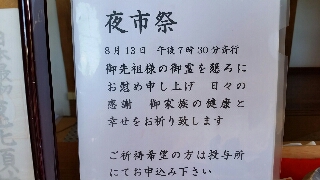 夜市祭
8月13日 午後7時30分斉行
御先祖様の御霊を懇ろに
お慰め申し上げ 日々の
感謝 御家族の健康と
幸せをお祈り致します
ご祈祷希望の方は授与所
にてお申込み下さい